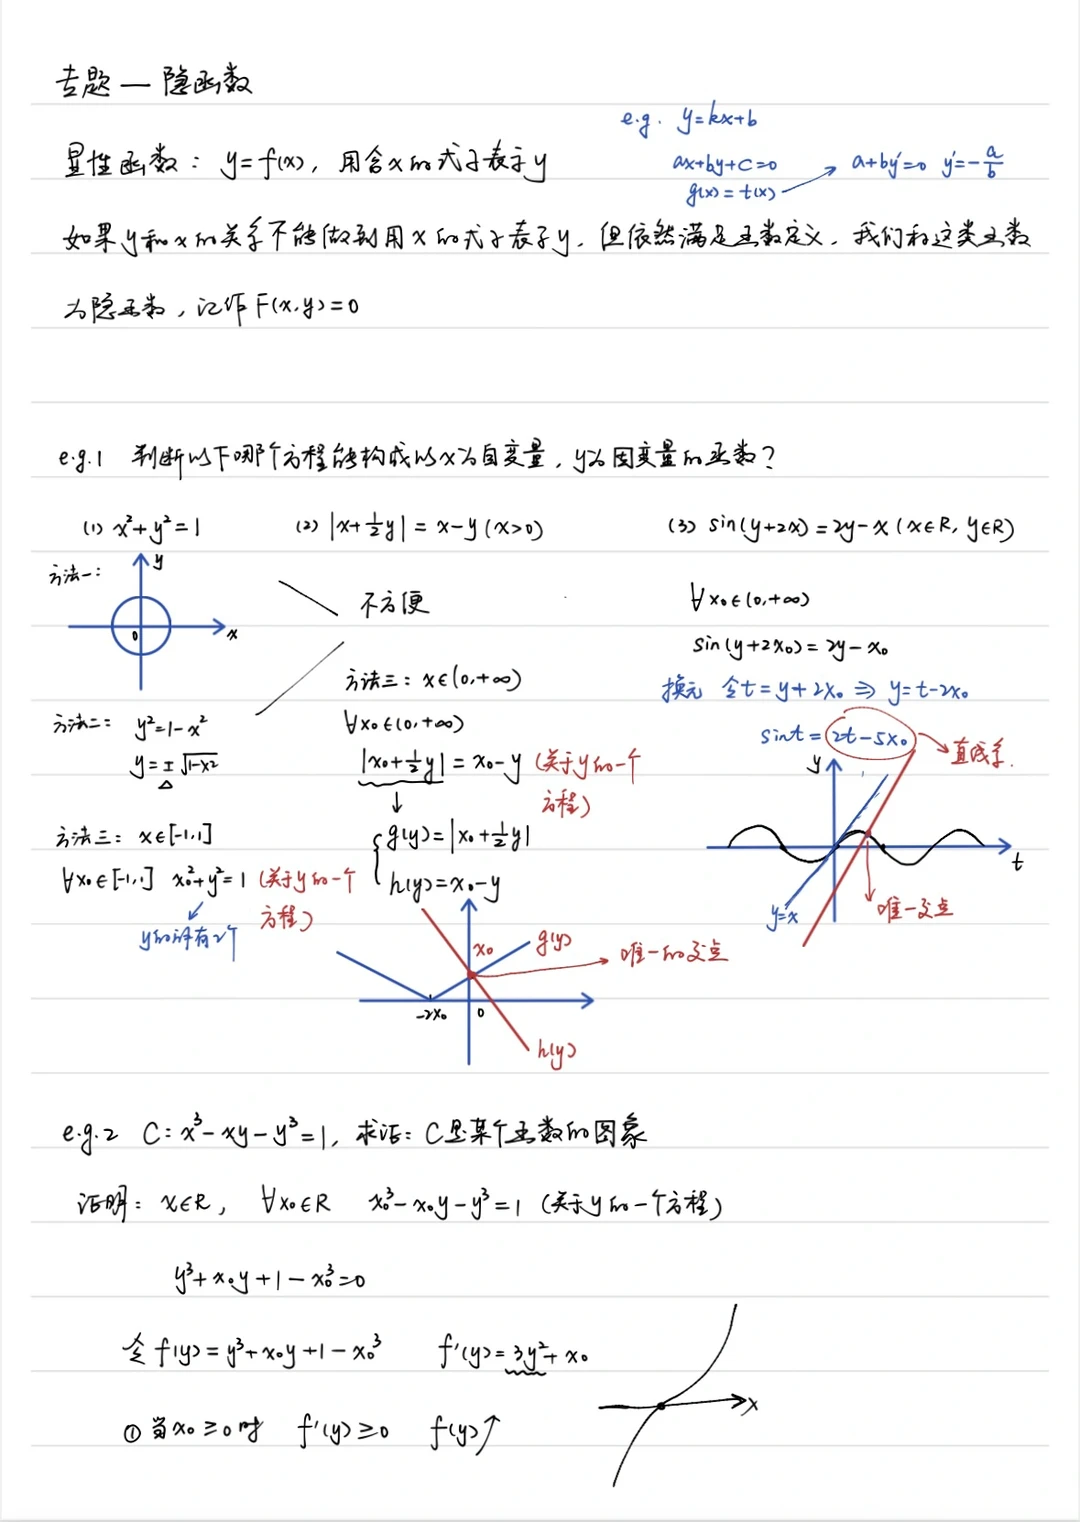 专题一 隐函数
e.g. y=kx+b
显性函数: y=f(x), 用含x的式子表示y
ax+by+c=0
g(x)=t(x)
a+by'=0 y'=-a/b
如果y和x的关系不能做到用x的式子表示y, 但依然满足函数定义, 我们称这类函数
为隐函数, 记作F(x,y)=0
e.g.1 判断以下哪个方程能构成以x为自变量, y为因变量的函数?
(1) x²+y²=1 (2) |x+½y|=x-y(x>0) (3) sin(y+2x)=2y-x(x∈R, y∈R)
方法一:
y
0
x
不方便
方法二: y²=1-x²
y=±√1-x²
方法三: x∈[-1,1]
∀x₀∈[-1,1] x₀²+y²=1 (关于y的一个方程)
y的解有2个
方法三: x∈(0,+∞)
∀x₀∈(0,+∞)
|x₀+½y|=x₀-y (关于y的一个方程)
g(y)=|x₀+½y|
h(y)=x₀-y
x₀
g(y)
唯一的交点
-2x₀
0
h(y)
∀x₀∈(0,+∞)
sin(y+2x₀)=2y-x₀
换元 令t=y+2x₀ ⇒ y=t-2x₀
sint=2t-5x₀
直线系.
y
t
y=x
唯一交点
e.g.2 C: x³-xy-y³=1, 求证: C是某个函数的图象
证明: x∈R, ∀x₀∈R x₀³-x₀y-y³=1 (关于y的一个方程)
y³+x₀y+1-x₀³=0
令f(y)=y³+x₀y+1-x₀³ f'(y)=3y²+x₀
① 当x₀≥0时 f'(y)≥0 f(y)↑
x